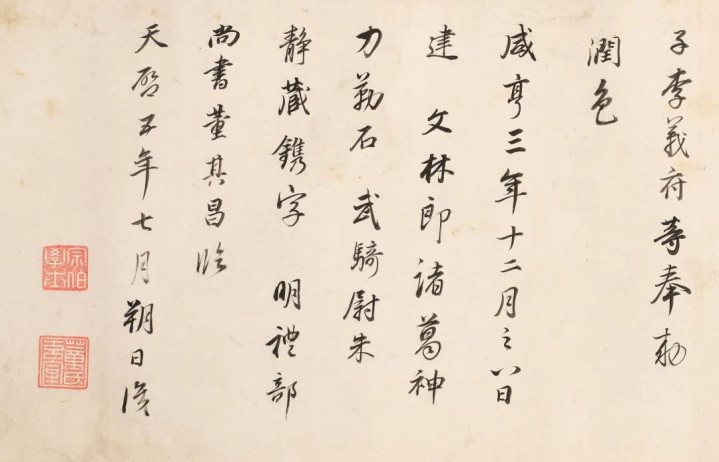 子李義府等奉勅
潤色
咸亨三年十二月之八日
建 文林郎諸葛神
力勒石 武騎尉朱
静藏鐫字 明禮部
尚書董其昌臨
天啓五年七月朔日
宗伯學士
董氏玄宰